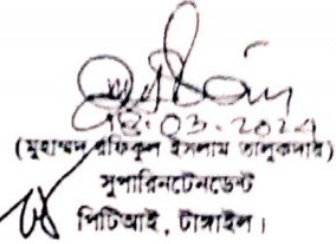 03.2024
(মুহাম্মদ রফিকুল ইসলাম তালুকদার)
সুপারিনটেনডেন্ট
পিটিআই, টাঙ্গাইল।